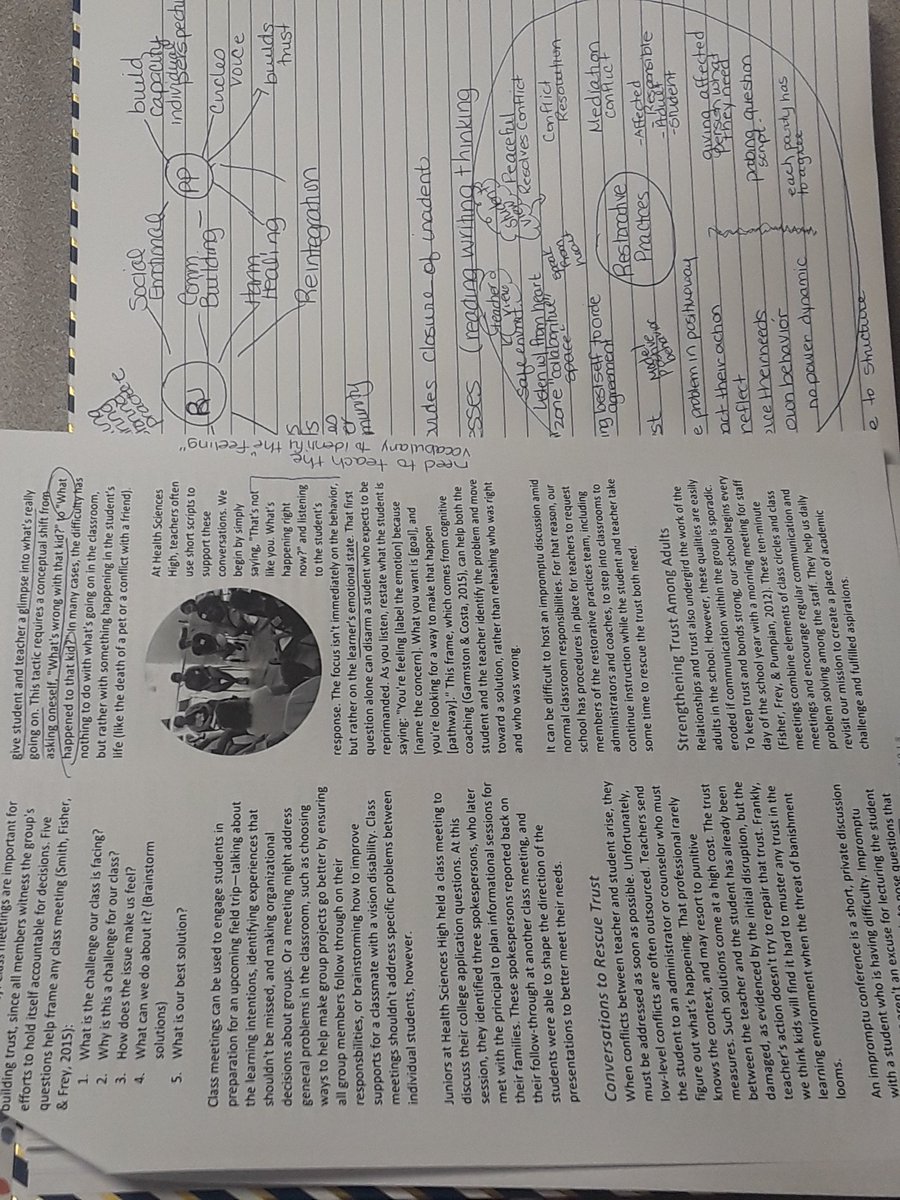 building trust, since all members witness the group's
efforts to hold itself accountable for decisions. Five
questions help frame any class meeting (Smith, Fisher,
& Frey, 2015):
1. What is the challenge our class is facing?
2. Why is this a challenge for our class?
3. How does the issue make us feel?
4. What can we do about it? (Brainstorm
solutions)
5. What is our best solution?
Class meetings can be used to engage students in
preparation for an upcoming field trip—talking about
the learning intentions, identifying experiences that
shouldn't be missed, and making organizational
decisions about groups. Or a meeting might address
general problems in the classroom, such as choosing
ways to help make group projects go better by ensuring
all group members follow through on their
responsibilities, or brainstorming how to improve
supports for a classmate with a vision disability. Class
meetings shouldn't address specific problems between
individual students, however.
Juniors at Health Sciences High held a class meeting to
discuss their college application questions. At this
session, they identified three spokespersons, who later
met with the principal to plan informational sessions for
their families. These spokespersons reported back on
their follow-through at another class meeting, and
students were able to shape the direction of the
presentations to better meet their needs.
Conversations to Rescue Trust
When conflicts between teacher and student arise, they
must be addressed as soon as possible. Unfortunately,
low-level conflicts are often outsourced. Teachers send
the student to an administrator or counselor who must
figure out what's happening. That professional rarely
knows the context, and may resort to punitive
measures. Such solutions come at a high cost. The trust
between the teacher and the student has already been
damaged, as evidenced by the initial disruption, but the
teacher's action doesn't try to repair that trust. Frankly,
we think kids will find it hard to muster any trust in the
learning environment when the threat of banishment
looms.
An impromptu conference is a short, private discussion
with a student who is having difficulty. Impromptu
aren't an excuse for lecturing the student
to pose questions that
give student and teacher a glimpse into what's really
going on. This tactic requires a conceptual shift from
asking oneself, "What's wrong with that kid?" to "What
happened to that kid?" In many cases, the difficulty has
nothing to do with what's going on in the classroom,
but rather with something happening in the student's
life (like the death of a pet or a conflict with a friend).
At Health Sciences
High, teachers often
use short scripts to
support these
conversations. We
begin by simply
saying, "That's not
like you. What's
happening right
now?" and listening
to the student's
response. The focus isn't immediately on the behavior,
but rather on the learner's emotional state. That first
question alone can disarm a student who expects to be
reprimanded. As you listen, restate what the student is
saying: "You're feeling [label the emotion] because
[name the concern]. What you want is [goal], and
you're looking for a way to make that happen
[pathway]." This frame, which comes from cognitive
coaching (Garmston & Costa, 2015), can help both the
student and the teacher identify the problem and move
toward a solution, rather than rehashing who was right
and who was wrong.
It can be difficult to host an impromptu discussion amid
normal classroom responsibilities. For that reason, our
school has procedures in place for teachers to request
members of the restorative practices team, including
administrators and coaches, to step into classrooms to
continue instruction while the student and teacher take
some time to rescue the trust both need.
Strengthening Trust Among Adults
Relationships and trust also undergird the work of the
adults in the school. However, these qualities are easily
eroded if communication within the group is sporadic.
To keep trust and bonds strong, our school begins every
day of the school year with a morning meeting for staff
(Fisher, Frey, & Pumpian, 2012). These ten-minute
meetings combine elements of class circles and class
meetings and encourage regular communication and
problem solving among the staff. They help us daily
revisit our mission to create a place of academic
challenge and fulfilled aspirations.
need to teach the
vocabulary to identify "the feeling"
RJ
Social
Emotional
Comm
Building
Harm
Healing
Reintegration
RP
build
capacity
individual
perspective
circles
voice
builds
trust
closure of incident
(reading writing thinking
teacher
view
safe
listen w/ from heart
"zone" collaborative
space
speak
from
heart
Peaceful
Resolves Conflict
Conflict
Resolution
best self forward
agreement
Restorative
Practices
Mediation
conflict
Model
positive
behavior
-Affected
- Responsible
- Adult
-student
problem in positive way
their action
reflect
their needs
own behavior
no power dynamic
giving affected
person what
they need
probing question
script.
each party has
to agree
to structure